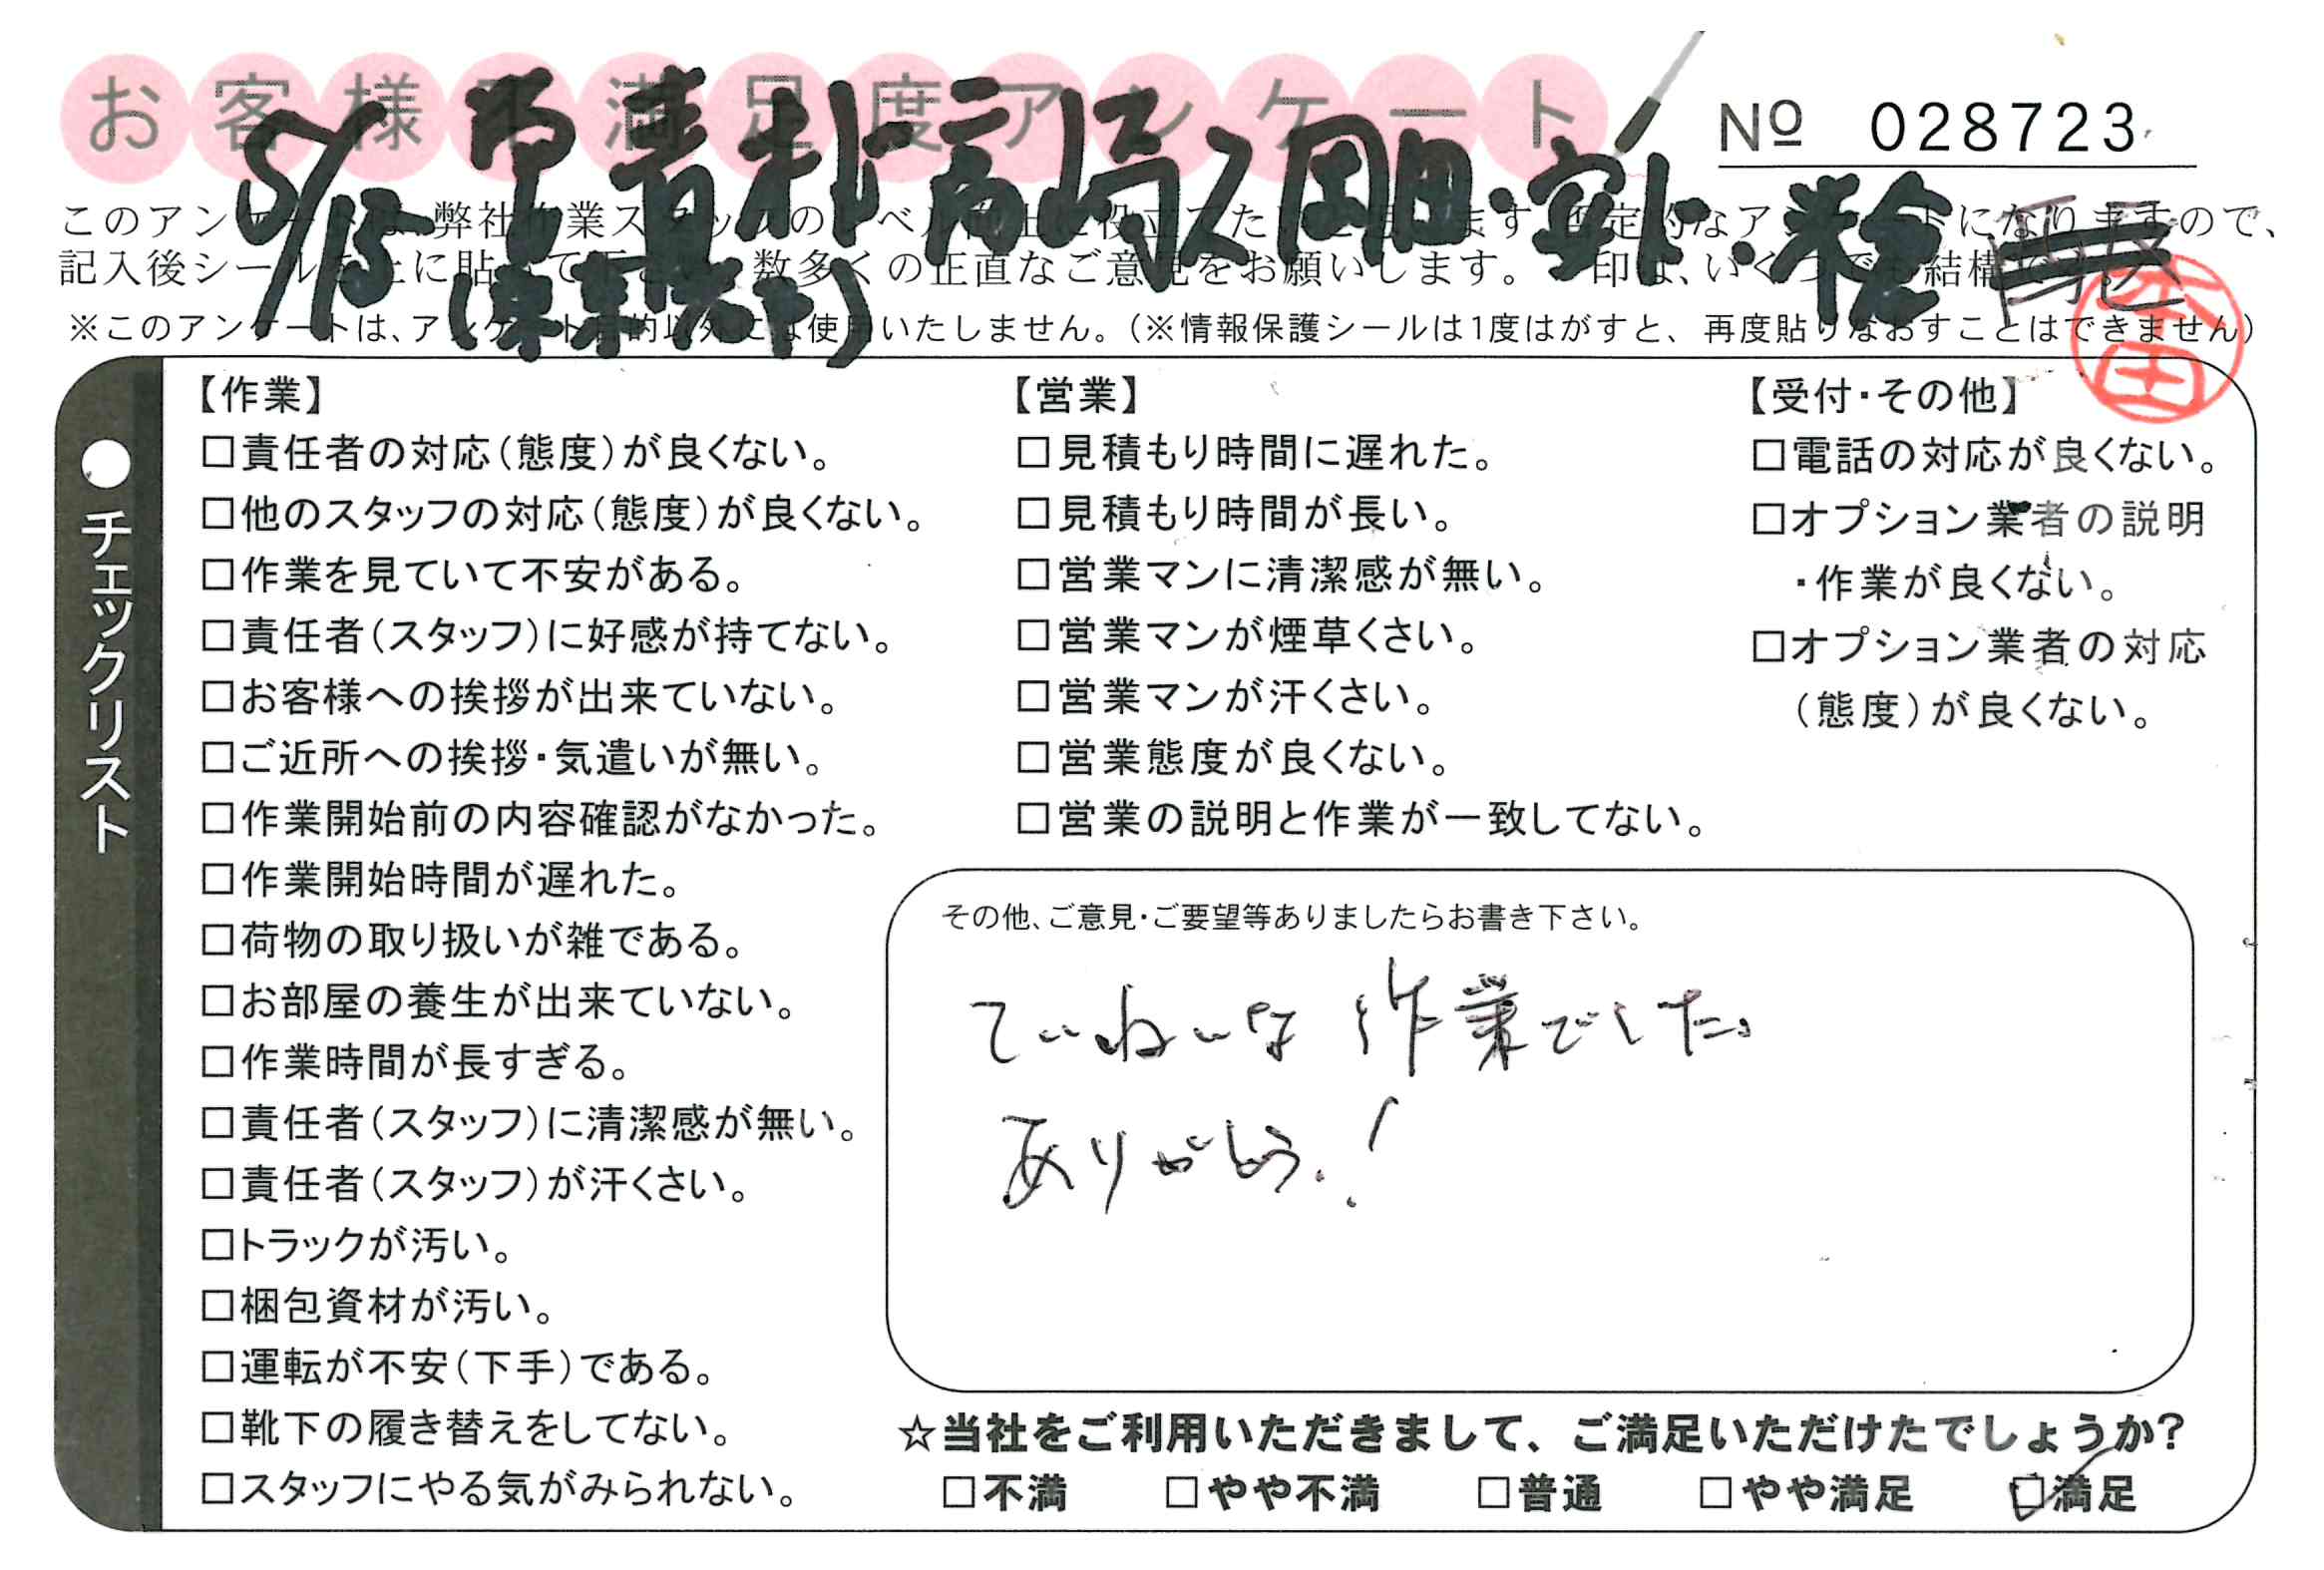 お客様不満足度アンケート
№ 028723
5/15
このアンケートは、弊社作業スタッフのレベル向上に役立てたいと思います。否定的なアンケートになりますので、
記入後シールを上に貼って下さい。数多くの正直なご意見をお願いします。 印は、いくつでも結構です。
※このアンケートは、アンケート目的以外には使用いたしません。(※情報保護シールは1度はがすと、再度貼りなおすことはできません)
本田
●チェックリスト
【作業】
□責任者の対応(態度)が良くない。
□他のスタッフの対応(態度)が良くない。
□作業を見ていて不安がある。
□責任者(スタッフ)に好感が持てない。
□お客様への挨拶が出来ていない。
□ご近所への挨拶・気遣いが無い。
□作業開始前の内容確認がなかった。
□作業開始時間が遅れた。
□荷物の取り扱いが雑である。
□お部屋の養生が出来ていない。
□作業時間が長すぎる。
□責任者(スタッフ)に清潔感が無い。
□責任者(スタッフ)が汗くさい。
□トラックが汚い。
□梱包資材が汚い。
□運転が不安(下手)である。
□靴下の履き替えをしてない。
□スタッフにやる気がみられない。
【営業】
□見積もり時間に遅れた。
□見積もり時間が長い。
□営業マンに清潔感が無い。
□営業マンが煙草くさい。
□営業マンが汗くさい。
□営業態度が良くない。
□営業の説明と作業が一致してない。
【受付・その他】
□電話の対応が良くない。
□オプション業者の説明
・作業が良くない。
□オプション業者の対応
(態度)が良くない。
その他、ご意見・ご要望等ありましたらお書き下さい。
ていねいな作業でした。
ありがとう.!
☆当社をご利用いただきまして、ご満足いただけたでしょうか?
□不満 □やや不満 □普通 □やや満足 ☑満足